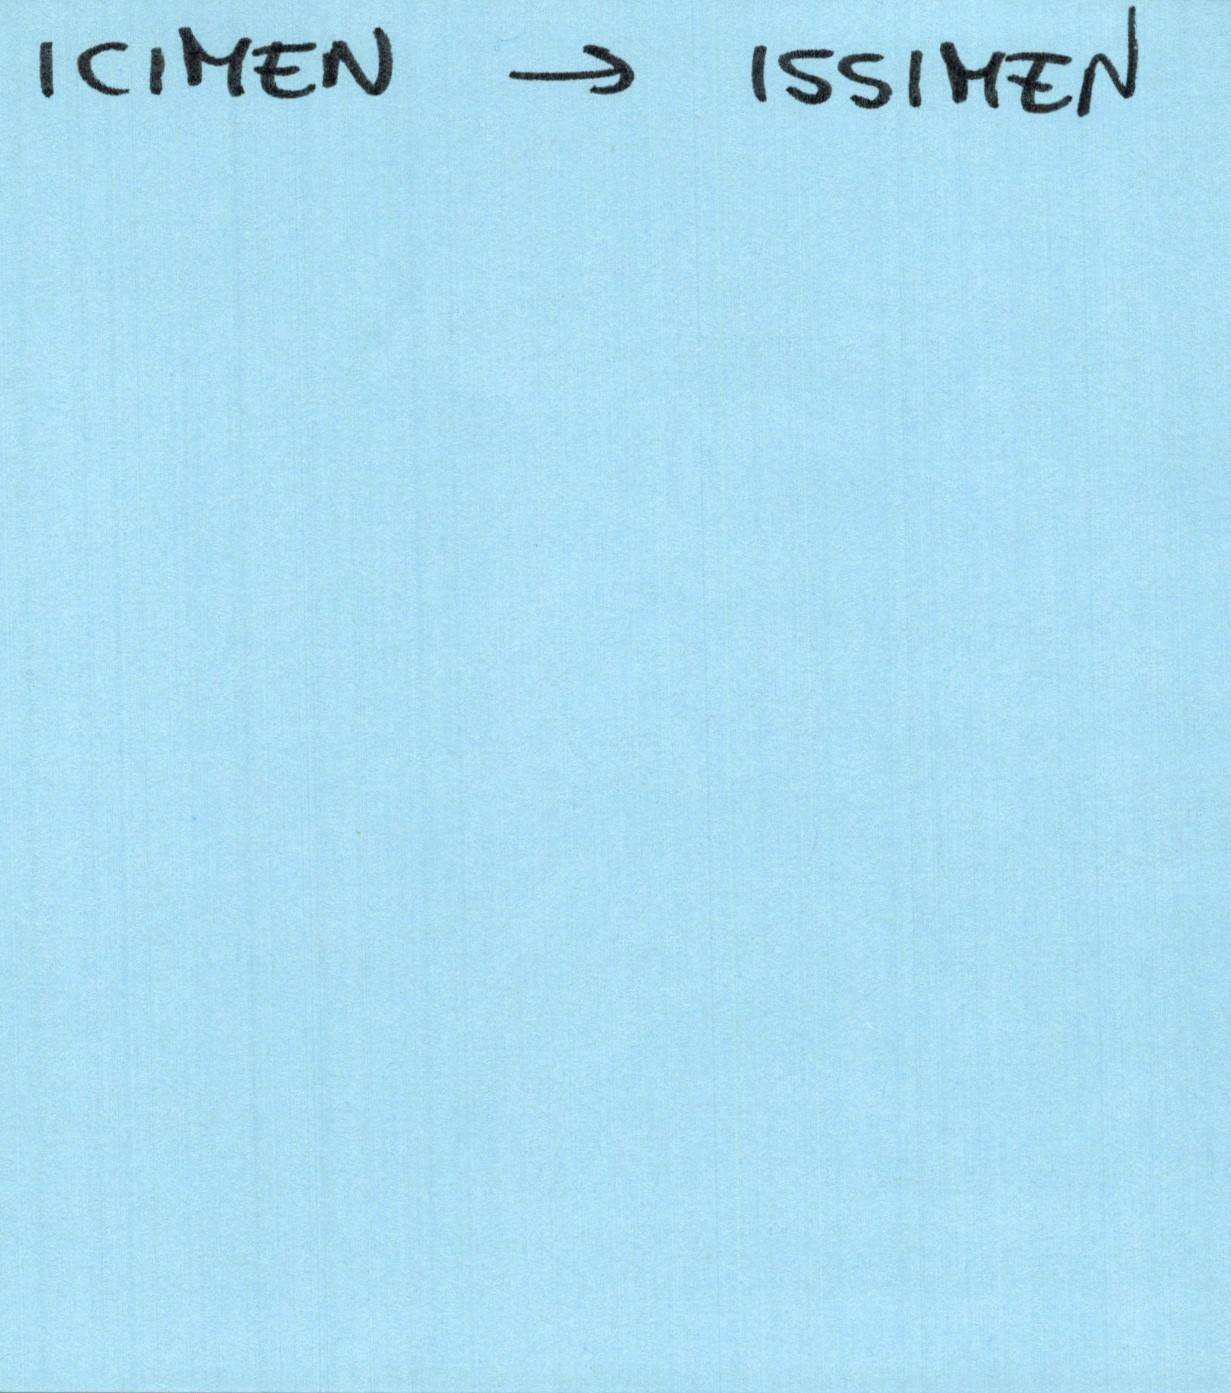 ICIMEN → ISSIMEN